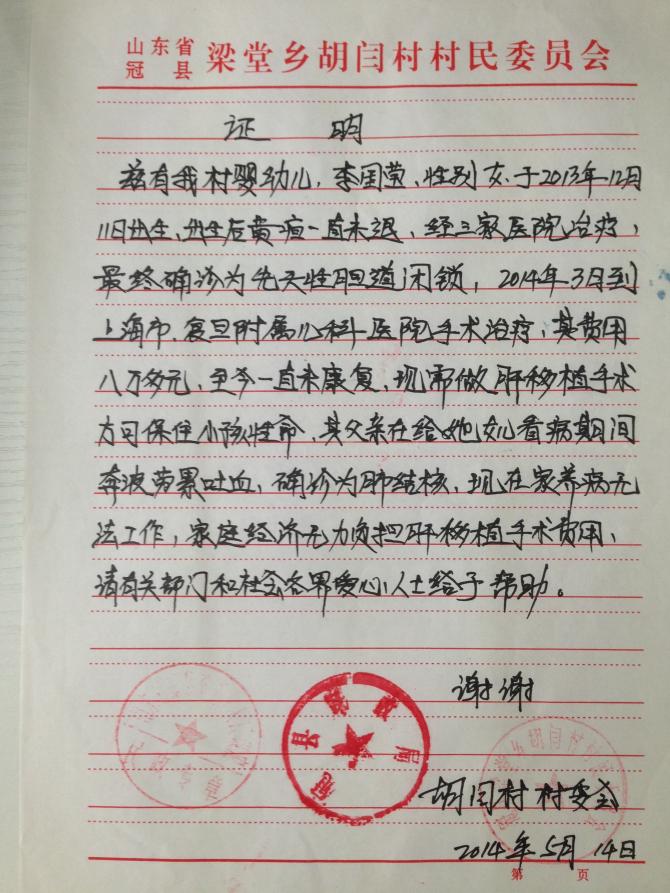 山东省
冠县
梁堂乡胡闫村村民委员会
证 明
兹有我村婴幼儿,李国莹,性别女.于2013年12月
11日出生、出生后黄疸一直未退、经三家医院治疗,
最终确诊为先天性胆道闭锁,2014年3月到
上海市.复旦附属儿科医院手术治疗,其费用
八万多元,至今一直未康复,现需做肝移植手术
方可保住小孩性命,其父亲在给她女儿看病期间
奔波劳累吐血,确诊为肺结核,现在家养病无
法工作,家庭经济无力负担肝移植手术费用、
请有关部门和社会各界爱心人士给予帮助。
谢谢
冠县民政局
胡闫村村委会
2014年5月14日
第 页